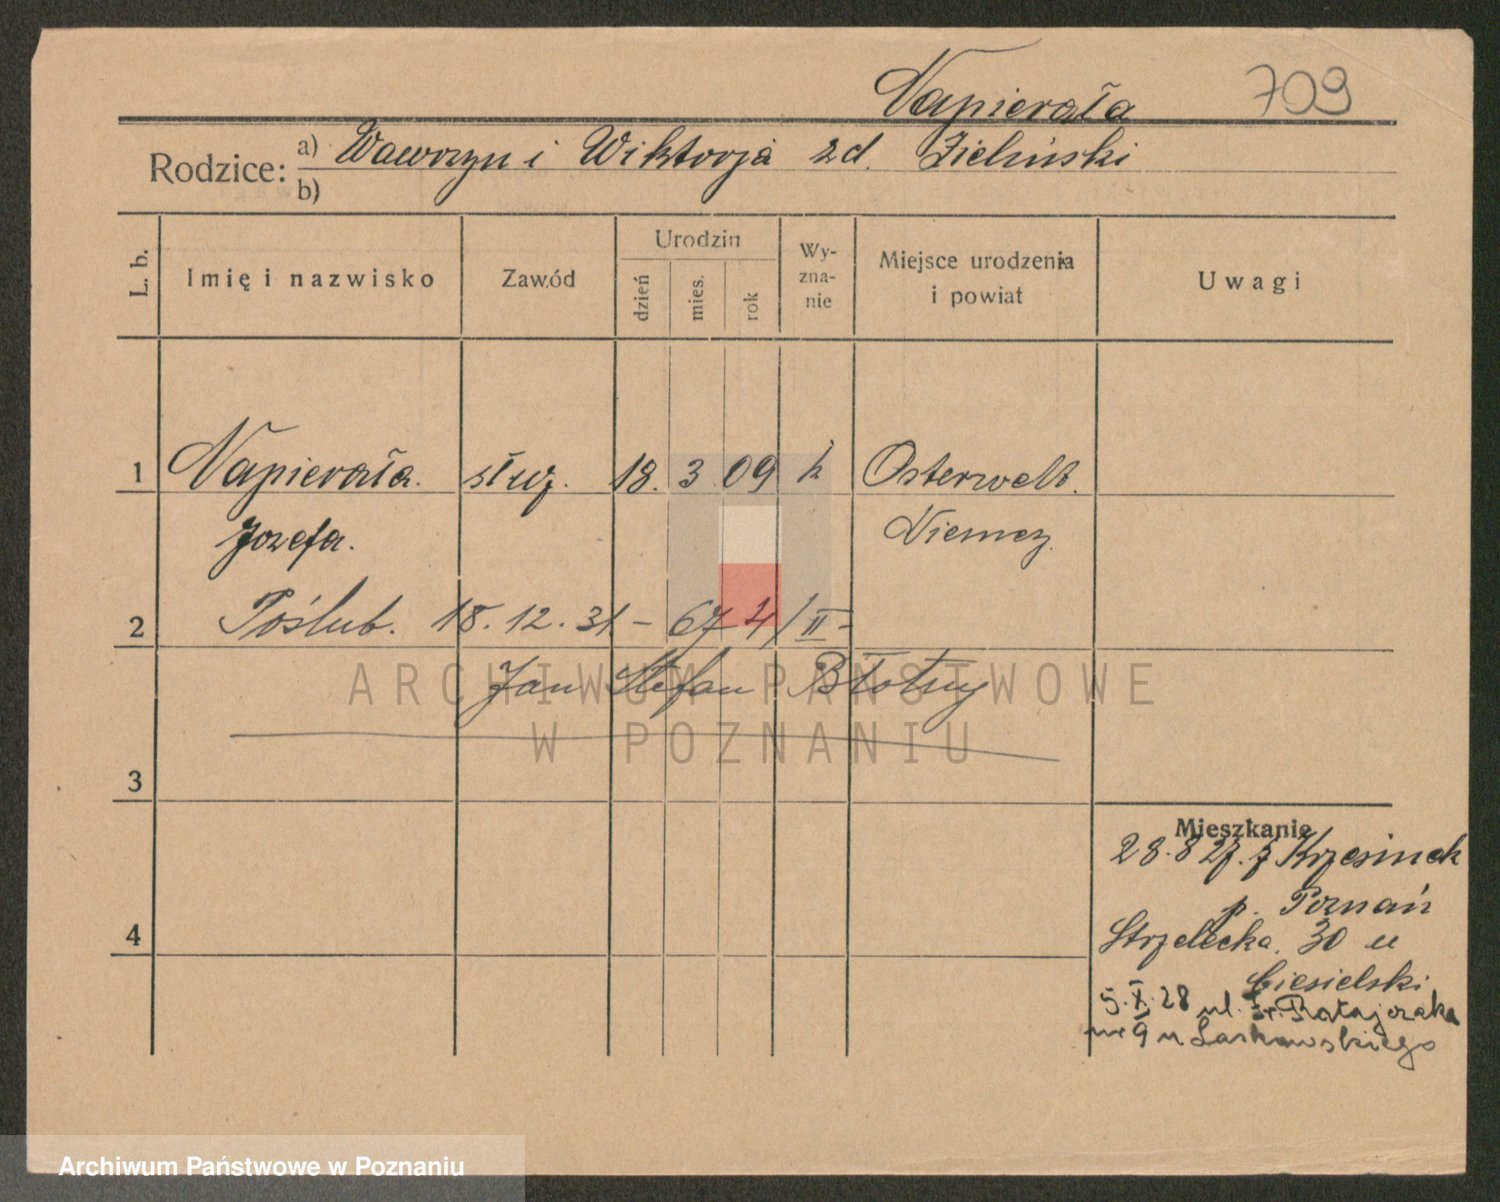 Napierała 709
Rodzice: a) Wawrzyn i Wiktorja zd. Zieliński
b)
L. b. Imię i nazwisko Zawód Urodzin Wyznanie Miejsce urodzenia i powiat Uwagi
dzień mies. rok
1 Napierała. służ. 18. 3 09 k Osterwelt.
Józefa. Niemcy.
2 Poślub. 18.12.31 - 674/II -
Jan Stefan Błotny
ARCHIWUM PAŃSTWOWE
W POZNANIU
3
Mieszkanie
28.8 27. z Krzesinek
p. Poznań
4 Strzelecka. 30 u
Ciesielski
5.X.28 ul. Fr. Ratajczaka
nr 9 u Laskowskiego
Archiwum Państwowe w Poznaniu